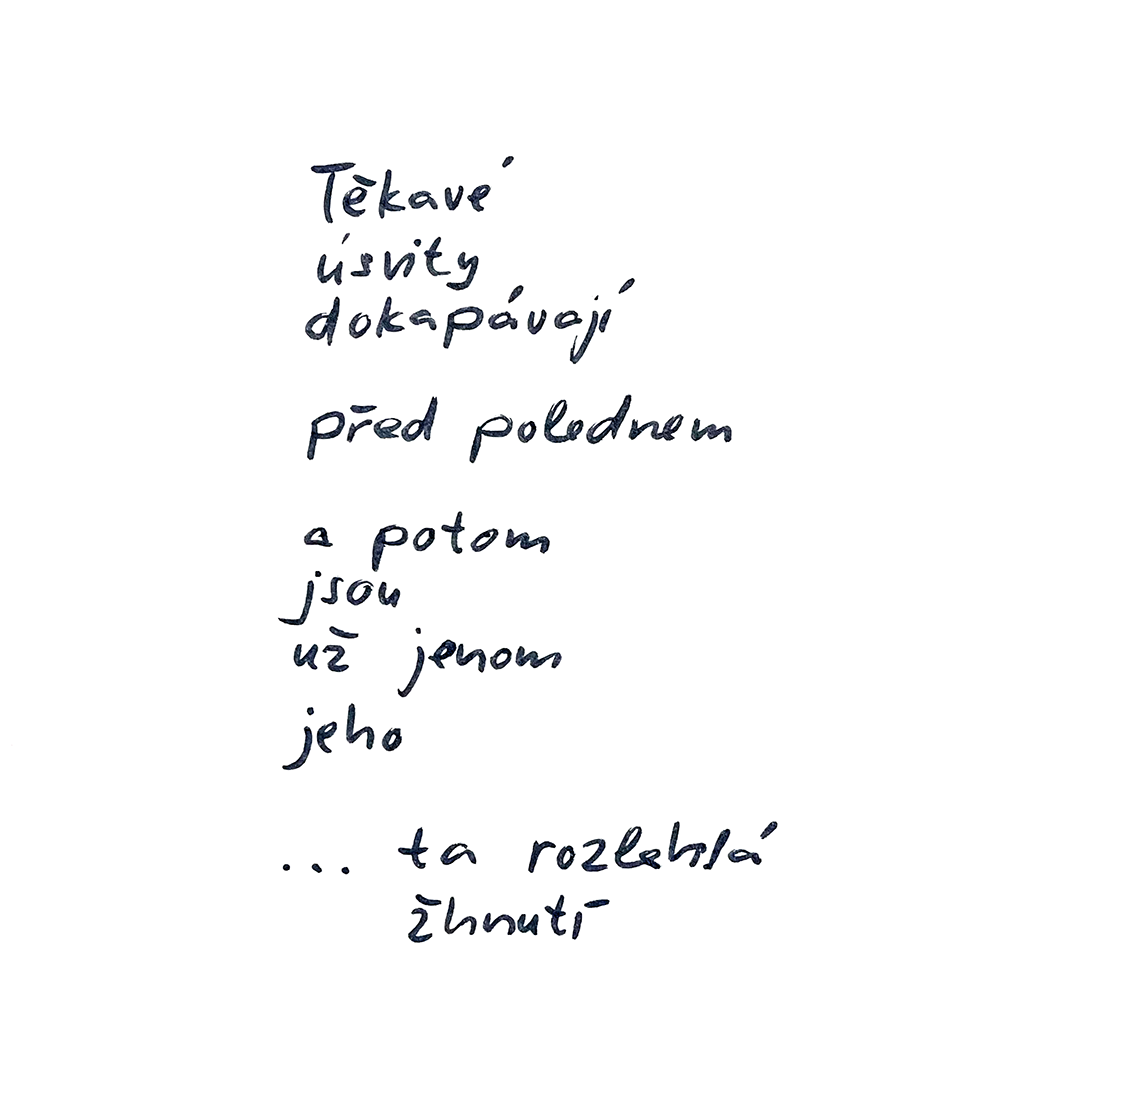 Těkavé
úsvity
dokapávají
před polednem
a potom
jsou
už jenom
jeho
... ta rozlehlá
žhnutí